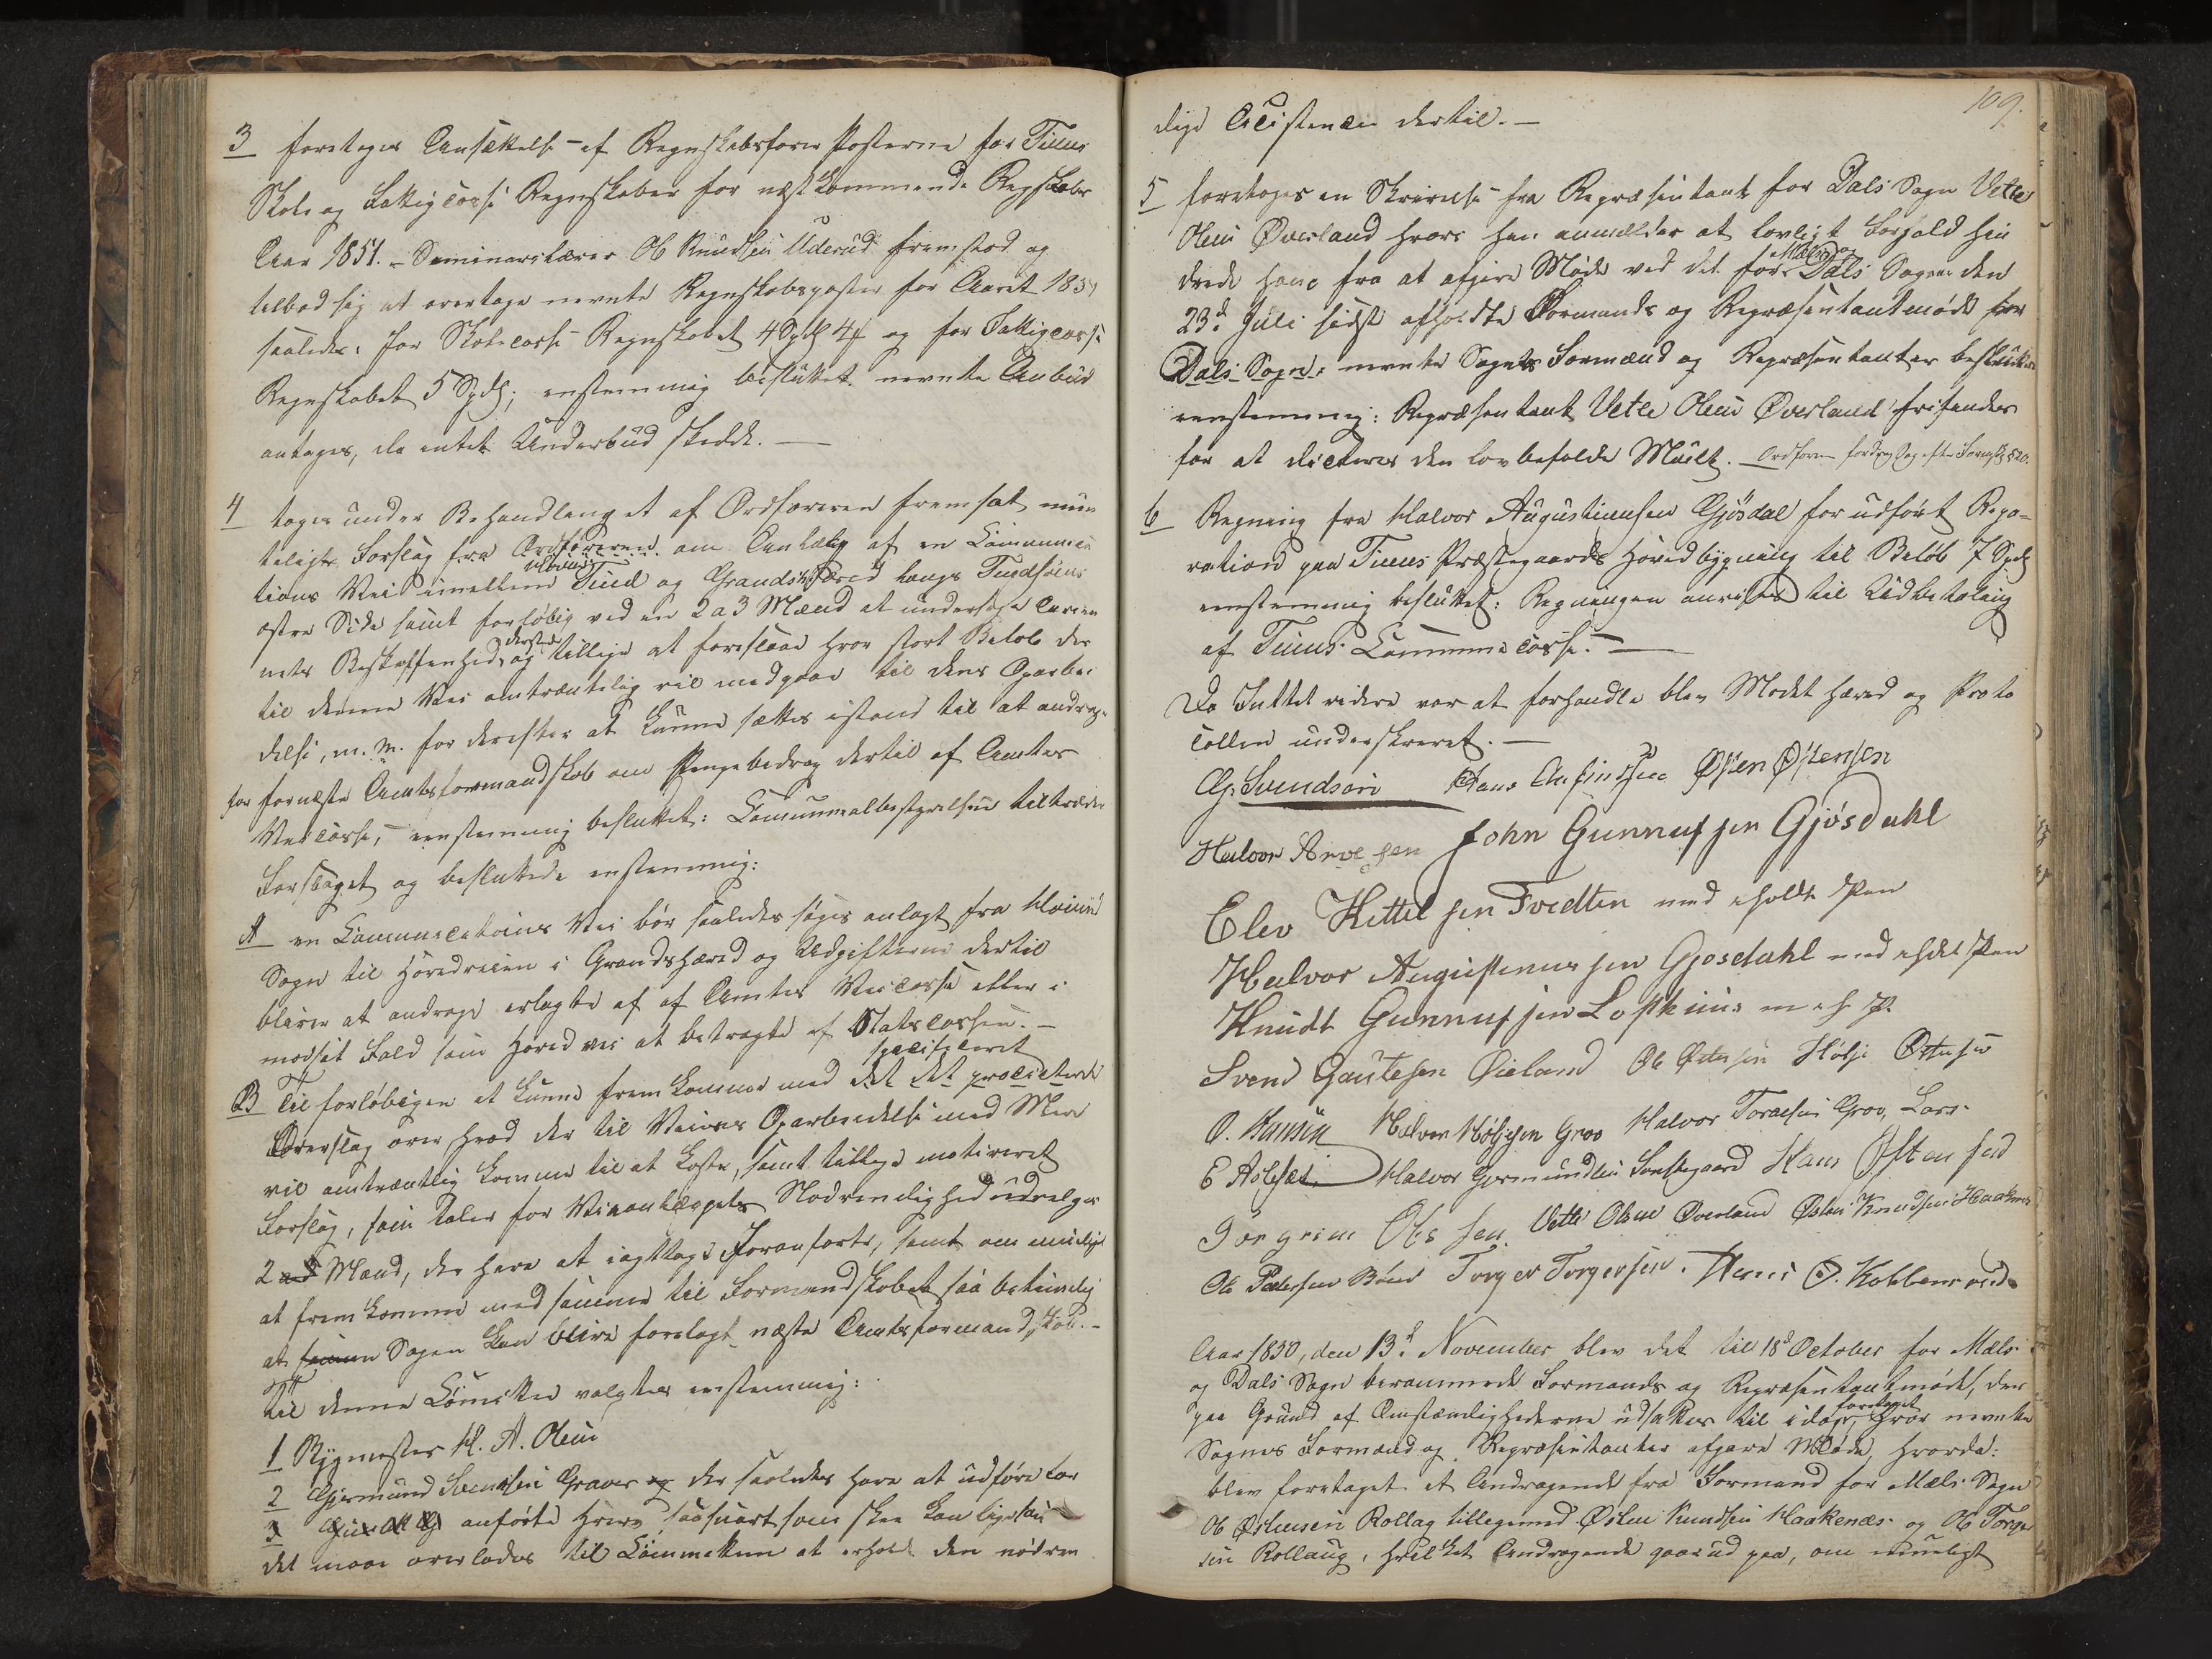 3 foretoges Ansættelse af Regnskabsfører Posterne for Tinns
Skole og Fattigcasse Regnskaber for næstkommende Regnskabs
Aar 1851. – Seminarslærer Ole Knudsen Uderud fremstod og
tilbød sig at overtage nævnte Regnskabsposter for Aaret 1851
saaledes: for Skolecasse Regnskabet 4 Spd og for Fattigcasse
Regnskabet 5 Spd; enstemmig besluttet nævnte Anbud
antages, da intet Underbud skedde. –
4 toges under Behandling et af Ordføreren fremsat mun
teligt Forslag fra Ordføreren om Anlæg af en Communica
tions Vei imellem Hovins Tind og Grandshered langs Tindsøens
østre Side samt forløbig ved en 2 a 3 Mænd at undersøge Terræ
nets Beskaffenhed, og derefter tillige at foreslaae hvor stort Beløb der
til denne Vei omtrentelig vil medgaae til dens Oparbei
delse, m. m. for derefter at kunne sættes istand til at andrage
for førnæste Amtsformandskab om Pengebidrag dertil af Amtets
Veicasse, – eenstemmig besluttet: Communalbestyrelsen tiltræder
Forslaget og besluttede enstemmig:
A en Communications Vei bør saaledes søges anlagt fra Hovind
Sogn til Hovedveien i Grandshered og Udgifterne dertil
bliver at andrage erlagte af Amtets Veicasse eller i
modsat Fald som Hovedvei at betragte af Statscassen. –
B Til forløbigen at kunne fremkomme med det specificeret det projecterede
Overslag over hvad der til Veiens Oparbeidelse med Mere
vil omtrentlig komme til at koste, samt tillige motiveret
Forslag, som taler for Veianlæggets Nødvendighed udvælges
2 Mænd, der have at iagttage Foranførte, samt om muligt
at fremkomme med samme til Formandskabet saa betimelig
at Sagen kan blive forelagt næste Amtsformandskab. –
Til denne Comitee valgtes eenstemmig:
1 Bygmester H. A. Olsen
2 Gjermund Svendsen Graver der saaledes have at udføre for
3 anførte Hverv saasnart som skee kan ligesom
det maae overlades til Committeen at erholde den nødven
109.
dige Assistence dertil. –
5 foretoges en Skrivelse fra Repræsentant for Dals Sogn Vetle
Olsen Øverland hvori han anmelder at lovligt Forfald hin
drede ham fra at afgive Møde ved det for Mæls og Dals Sogne den
23d Juli sidst afholdte Formands og Repræsentantmøde for
Dals Sogn: nævnte Sogns Formænd og Repræsentanter besluttede
eenstemmig: Repræsentant Vetle Olsen Øverland frifindes
for at dicteres den lovbefalede Mulct. –
6 Regning fra Halvor Augustinusen Gjøsdal for udført Repa=
ration paa Tinns Præstegaards Hovedbygning til Beløb 7 Spd
eenstemmig besluttet: Regningen anvises til Udbetaling
af Tinns Communecasse. –
Da Intet videre var at forhandle blev Mødet hævet og Proto
collen underskrevet. –
G. Svendsen Hans Anfindsen Østen Østensen
Halvor Arvesen John Gunnufsen Gjøsdahl
Elev Kittelsen Tvedten med eholdt Pen
Halvor Augustinusen Gjosdahl med eholdt Pen
Knudt Gunnufsen Lofthuus m e h P.
Svend Gautesen Øieland Ole Østensen Høljè Østensen
O. Hansen Halvor Høljesen Groo Halvor Toraasen Groo, Lars-
E Aslesen Halvor Germundsen Ha Hans Østensen
Torgrim Olsen. Vetle Olsen Øverland Østen Knudsen Haakenes
Ole Pedersen Bøen Torger Torgersen. Hans O. Kobbervold
Aar 1850, den 13d November blev det til 18d October for Mæls
og Dals Sogn berammede Formands og Repræsentantmøde, der
paa Grund af Omstændighederne udsattes til idag, foretaget hvor nævnte
Sognes Formænd og Repræsentanter afgave Møde, hvorda:
blev foretaget et Andragende fra Formand for Mæls Sogn
Ole Østensen Rollag tilligemed Østen Knudsen Haakenæs og Ole Torger
sen Rollaug, hvilket Andragende gaar ud paa, om mueligt